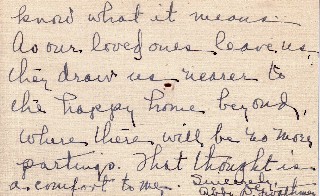 know what it means.
As our loved ones leave us,
they draw us nearer to
the happy home beyond,
where there will be no more
partings. That thought is
a comfort to me. Sincerely,
Abby